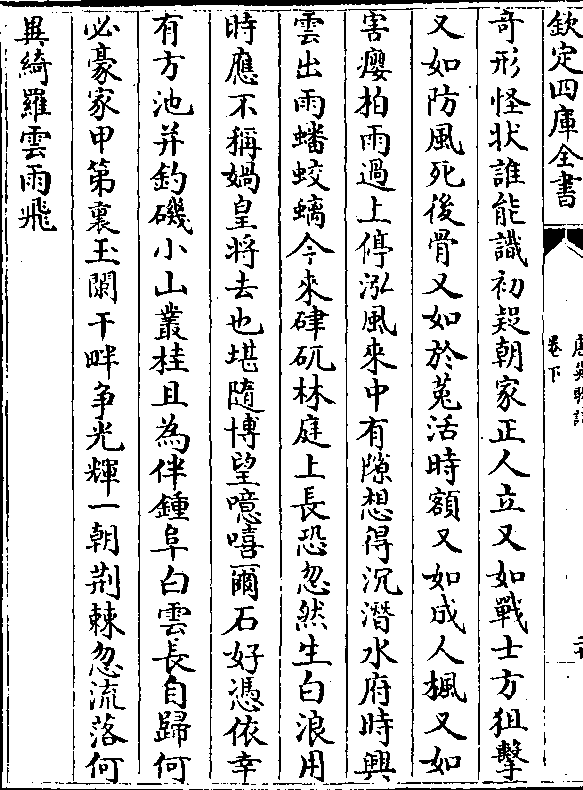 欽定四庫全書
卷下
竒形怪状誰能識初疑朝家正人立又如戰士方狙擊
又如防風死後骨又如於菟活時額又如成人楓又如
害癭柏雨過上停泓風來中有隙想得沉潛水府時興
雲出雨蟠蛟螭今來硉矹林庭上長恐忽然生白浪用
時應不稱媧皇将去也堪隨博望噫嘻爾石好憑依幸
有方池并釣磯小山叢桂且為伴鍾阜白雲長自歸何
必豪家甲第裏玉闌干畔争光輝一朝荆棘忽流落何
異綺羅雲雨飛